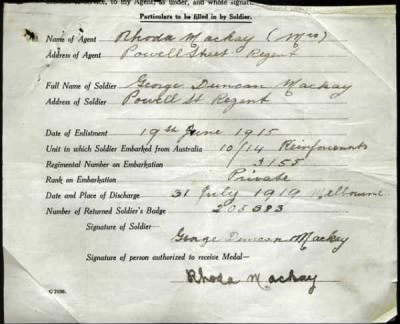 to my Agent, as under, and whose signature
Particulars to be filled in by Soldier.
Name of Agent Rhoda Mackay (Mrs)
Address of Agent Powell Street Regent
Full Name of Soldier George Duncan Mackay
Address of Soldier Powell St Regent
Date of Enlistment 19th June 1915
Unit in which Soldier Embarked from Australia 10/14 Reinforcements
Regimental Number on Embarkation 3155
Rank on Embarkation Private
Date and Place of Discharge 31 July 1919 Melbourne
Number of Returned Soldier's Badge 205383
Signature of Soldier—
George Duncan Mackay
Signature of person authorized to receive Medal—
Rhoda Mackay